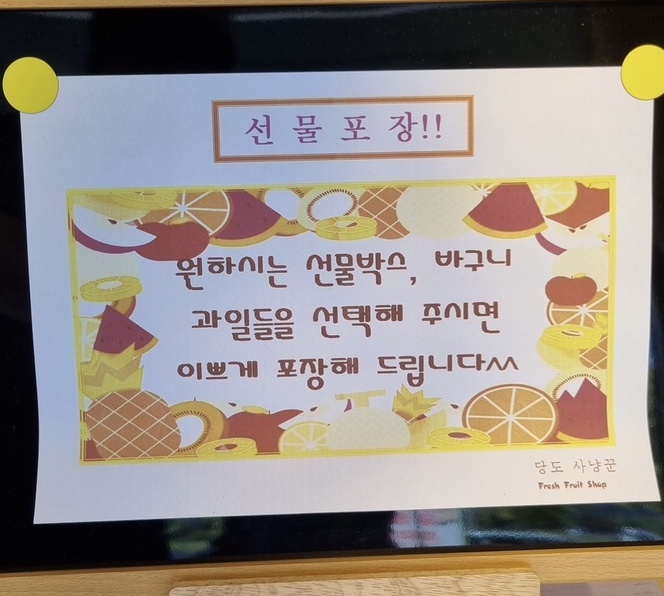 선 물 포 장!!
원하시는 선물박스, 바구니
과일들을 선택해 주시면
이쁘게 포장해 드립니다^^
당도 사냥꾼
Fresh Fruit Shop